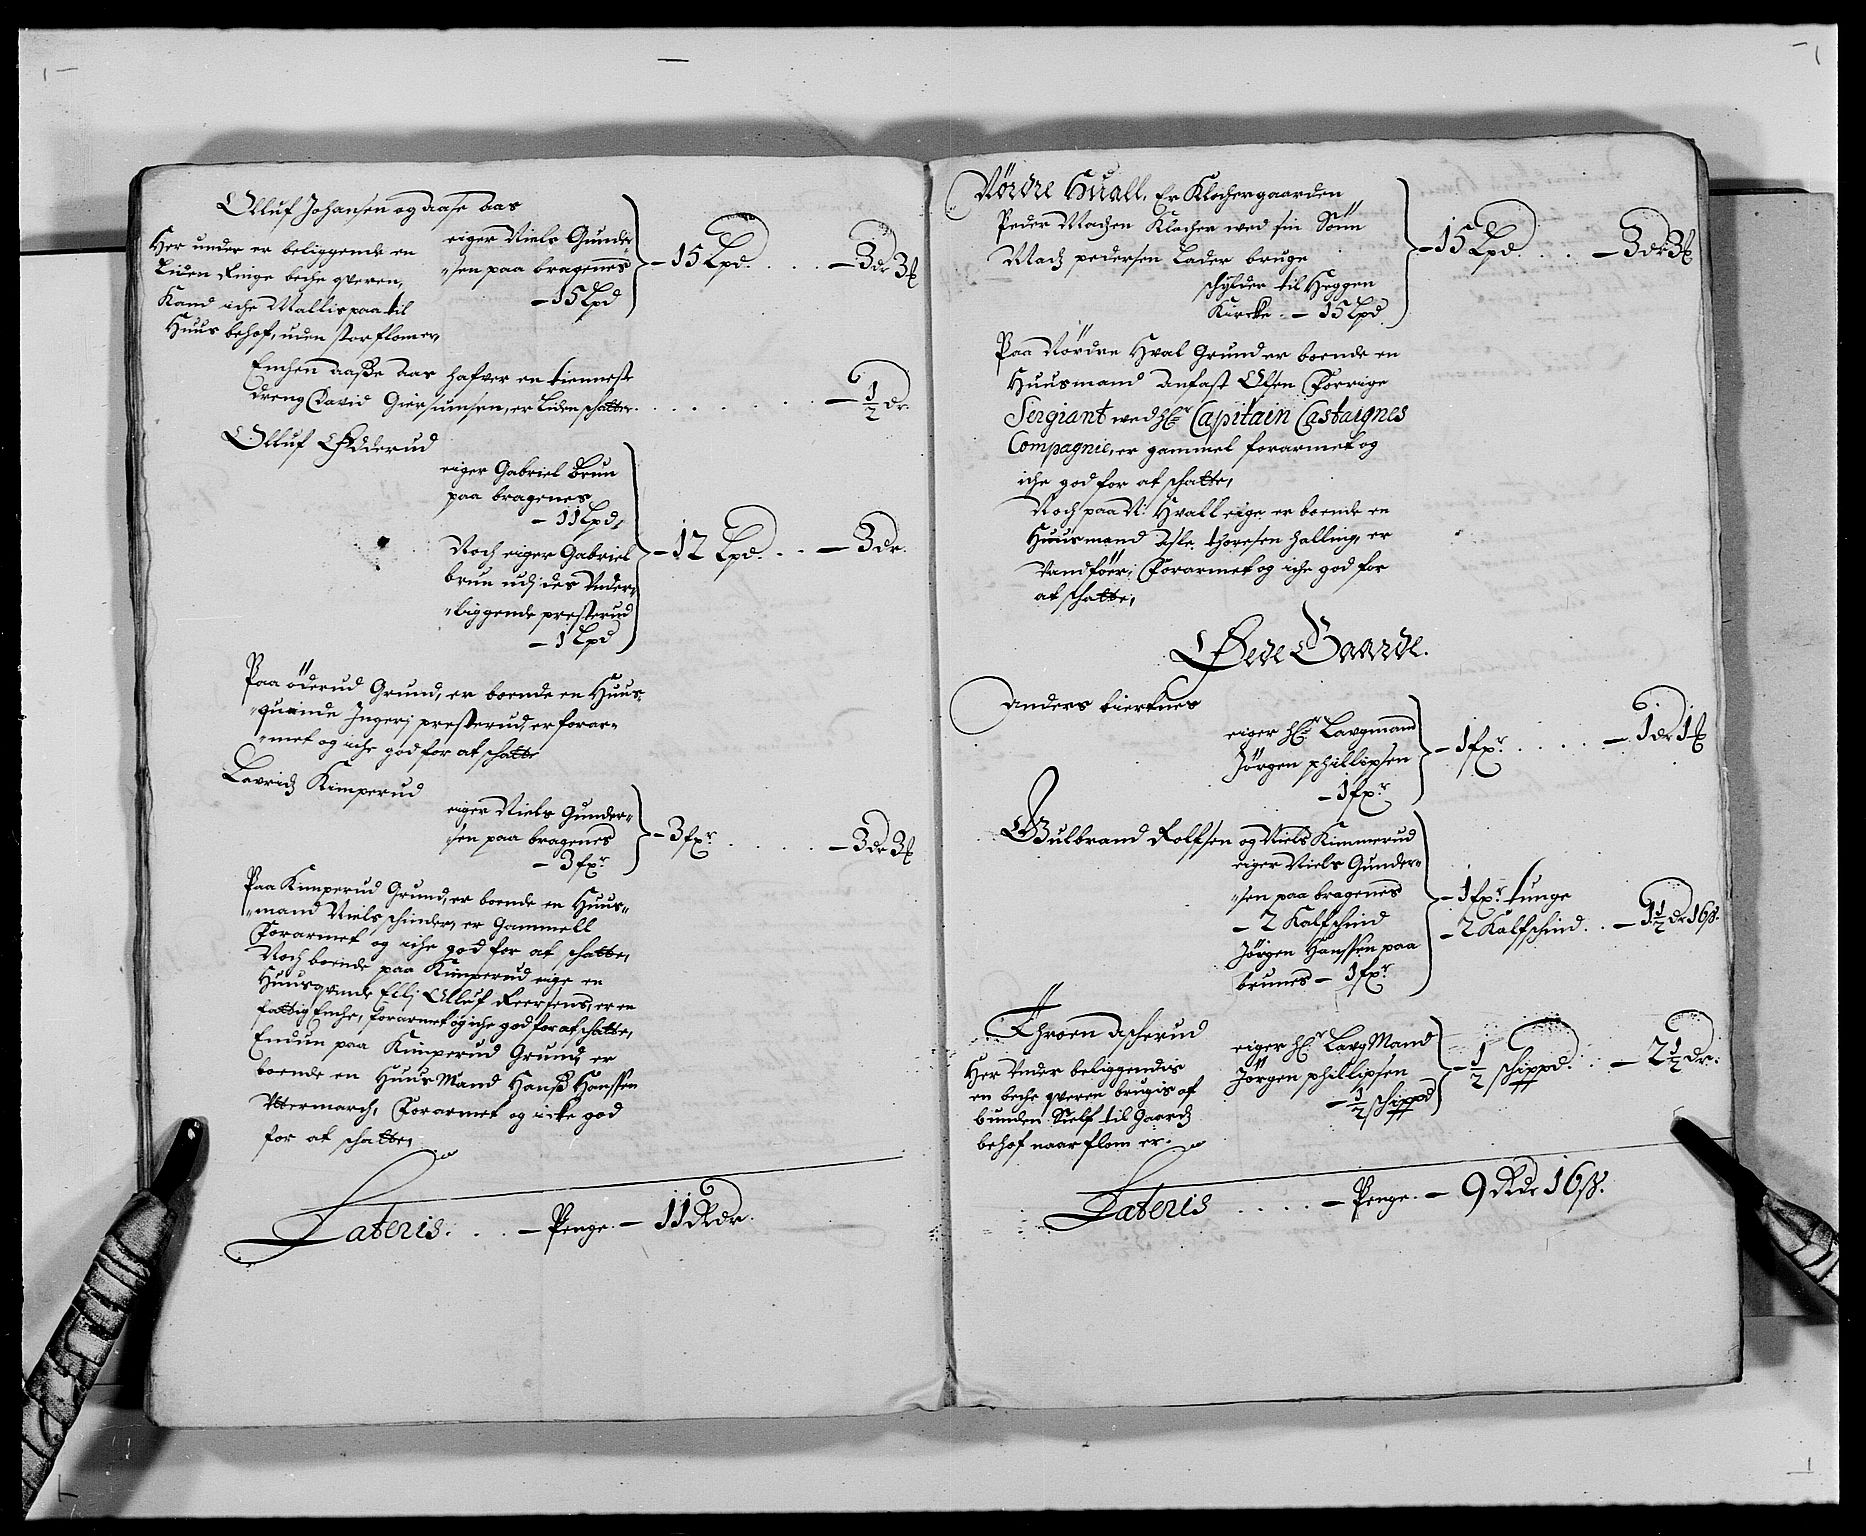 Olluf Johansen og aase aas
Her under er beliggende en
liden Ringe beche qveren,
Kand iche Mallis paa til
Huus behof, uden stor flomer,
eiger Niels Gunder-
sen paa bragenes
- 15 Lpd
- 15 Lpd. . . . - 3 dr 3
Enchen aasse aas hafver en tienneste
dreng David Giersumsen, er liden schatter. . . . . . . - 1/2 dr.
Olluf Ødderud
eiger Gabriel Brun
paa bragenes
- 11 Lpd,
Noch eiger Gabriel
brun udj des Under-
liggende presterud
- 1 Lpd
- 12 Lpd. . . - 3 dr.
Paa öderud Grund, er boende en Huus-
quinde Ingerj presterud, er forar-
met og iche god for at schatte
Lavridz Kimperud
eiger Niels Gunder-
sen paa bragenes
- 3 fxr
- 3 fxr. . . . . - 3 dr 3
Paa Kimperud Grund, er boende en Huus-
mand Niels schinder, er Gammell
Forarmet og iche god for at schatte,
Noch boende paa Kimperud eige en
Huusqvinde Ellj Olluf Reersens, er en
fattig Enche, forarmet og iche god for at schatte,
Endnu paa Kimperud Grund er
boende en Huus Mand Hanss Hanssen
Uttermarch, Forarmet og icke god
for at schatte,
Lateris. . . . - Penge. - 11 Rdr.
Nördre Huall, Er Klochergaarden
Peder Madzen Klocher med sin Sönn
Madz pedersen Lader bruge
schylder til Heggen
Kircke. - 15 Lpd
- 15 Lpd. . . - 3 dr 3
Paa Nördre Hval Grund er boende en
Huusmand Anfast Olsen Forrige
Sergiant wed Hr Capitain Castaignes
Compagnie, er gammel forarmet og
iche god for at schatte,
Noch paa N: Hvall eige er boende en
Huusmand Asle thoresen halling, er
Vanföer, Forarmet og iche god for
at schatte,
Øede Gaarde.
Anders bierknes
eiger Hr Laugmand
Jörgen phillipsen
- 1 fxr
- 1 fxr. . . . . - 1 dr 1
Gulbrand Rolfsen og Niels Kimmerud
eiger Niels Gunder-
sen paa bragenes
- 2 Kalfschind
Jörgen Hanssen paa
brunes - 1 fxr
- 1 fxr tunge
- 2 Kalfschind. . . - 1 1/2 dr 16 s.
Throen Ascherud
Her Under beliggendis
en beche qveren brugis af
bunden Sielf til Gaardz
behof naar flom er.
eiger Hr Laug Mand
Jörgen phillipsen
- 1/2 schippd
- 1/2 schippd. . . - 2 1/2 dr.
Lateris . . . . - Penge. - 9 Rdr 16 s.